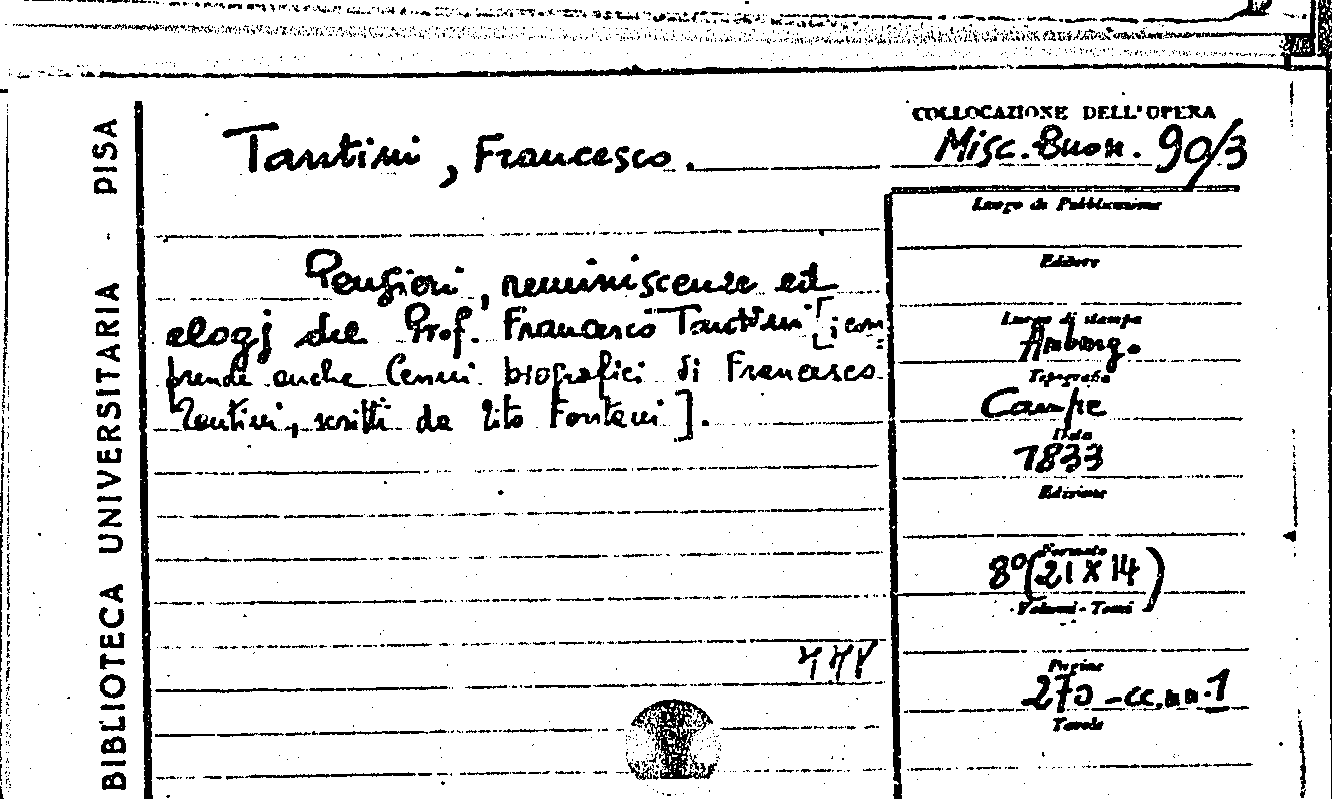 BIBLIOTECA UNIVERSITARIA - PISA
Tantini, Francesco.
Pensieri, reminiscenze ed
elogj del Prof. Francesco Tantini [; com=
prende anche Cenni biografici di Francesco
Tantini, scritti da Tito Fontani].
COLLOCAZIONE DELL'OPERA
Misc. Buon. 90/3
Luogo di Pubblicazione
Editore
Luogo di stampa
Amburgo
Tipografia
Campe
Data
1833
Edizione
Formato
8º (21 X 14)
Volumi - Tomi
Pagine
270 - cc.nn.1
Tavole